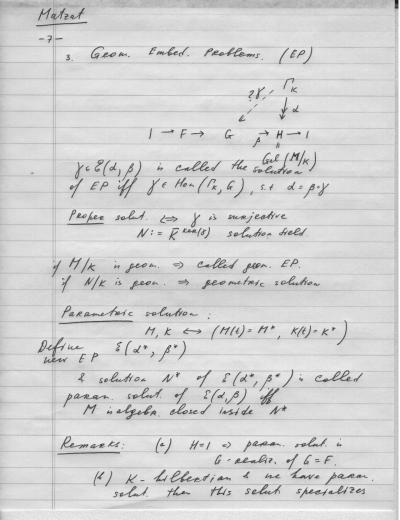 Matzat
-7-
3. Geom. Embed. Problems. (EP)
?γ Γ_K
↓ α
1 → F → G →_β H → 1
Gal(M/K)
γ ∈ Ɛ(α, β) is called the solution
of EP iff γ ∈ Hom(Γ_K, G), s.t α = β∘γ
Proper solut. ⇔ γ is surjective
N := K̄^ker(γ) solution field
if M/K is geom. ⇒ called geom. EP.
if N/K is geom. ⇒ geometric solution
Parametric solution:
M, K ↔ (M(t) = M*, K(t) = K*)
Define Ɛ(α*, β*)
new EP
& solution N* of Ɛ(α*, β*) is called
param. solut. of Ɛ(α, β) iff
M is algebr. closed inside N*
Remarks: (a) H=1 ⇒ param. solut. is
G-realiz. of G=F.
(b) K-hilbertian & we have param.
solut. then this solut. specializes